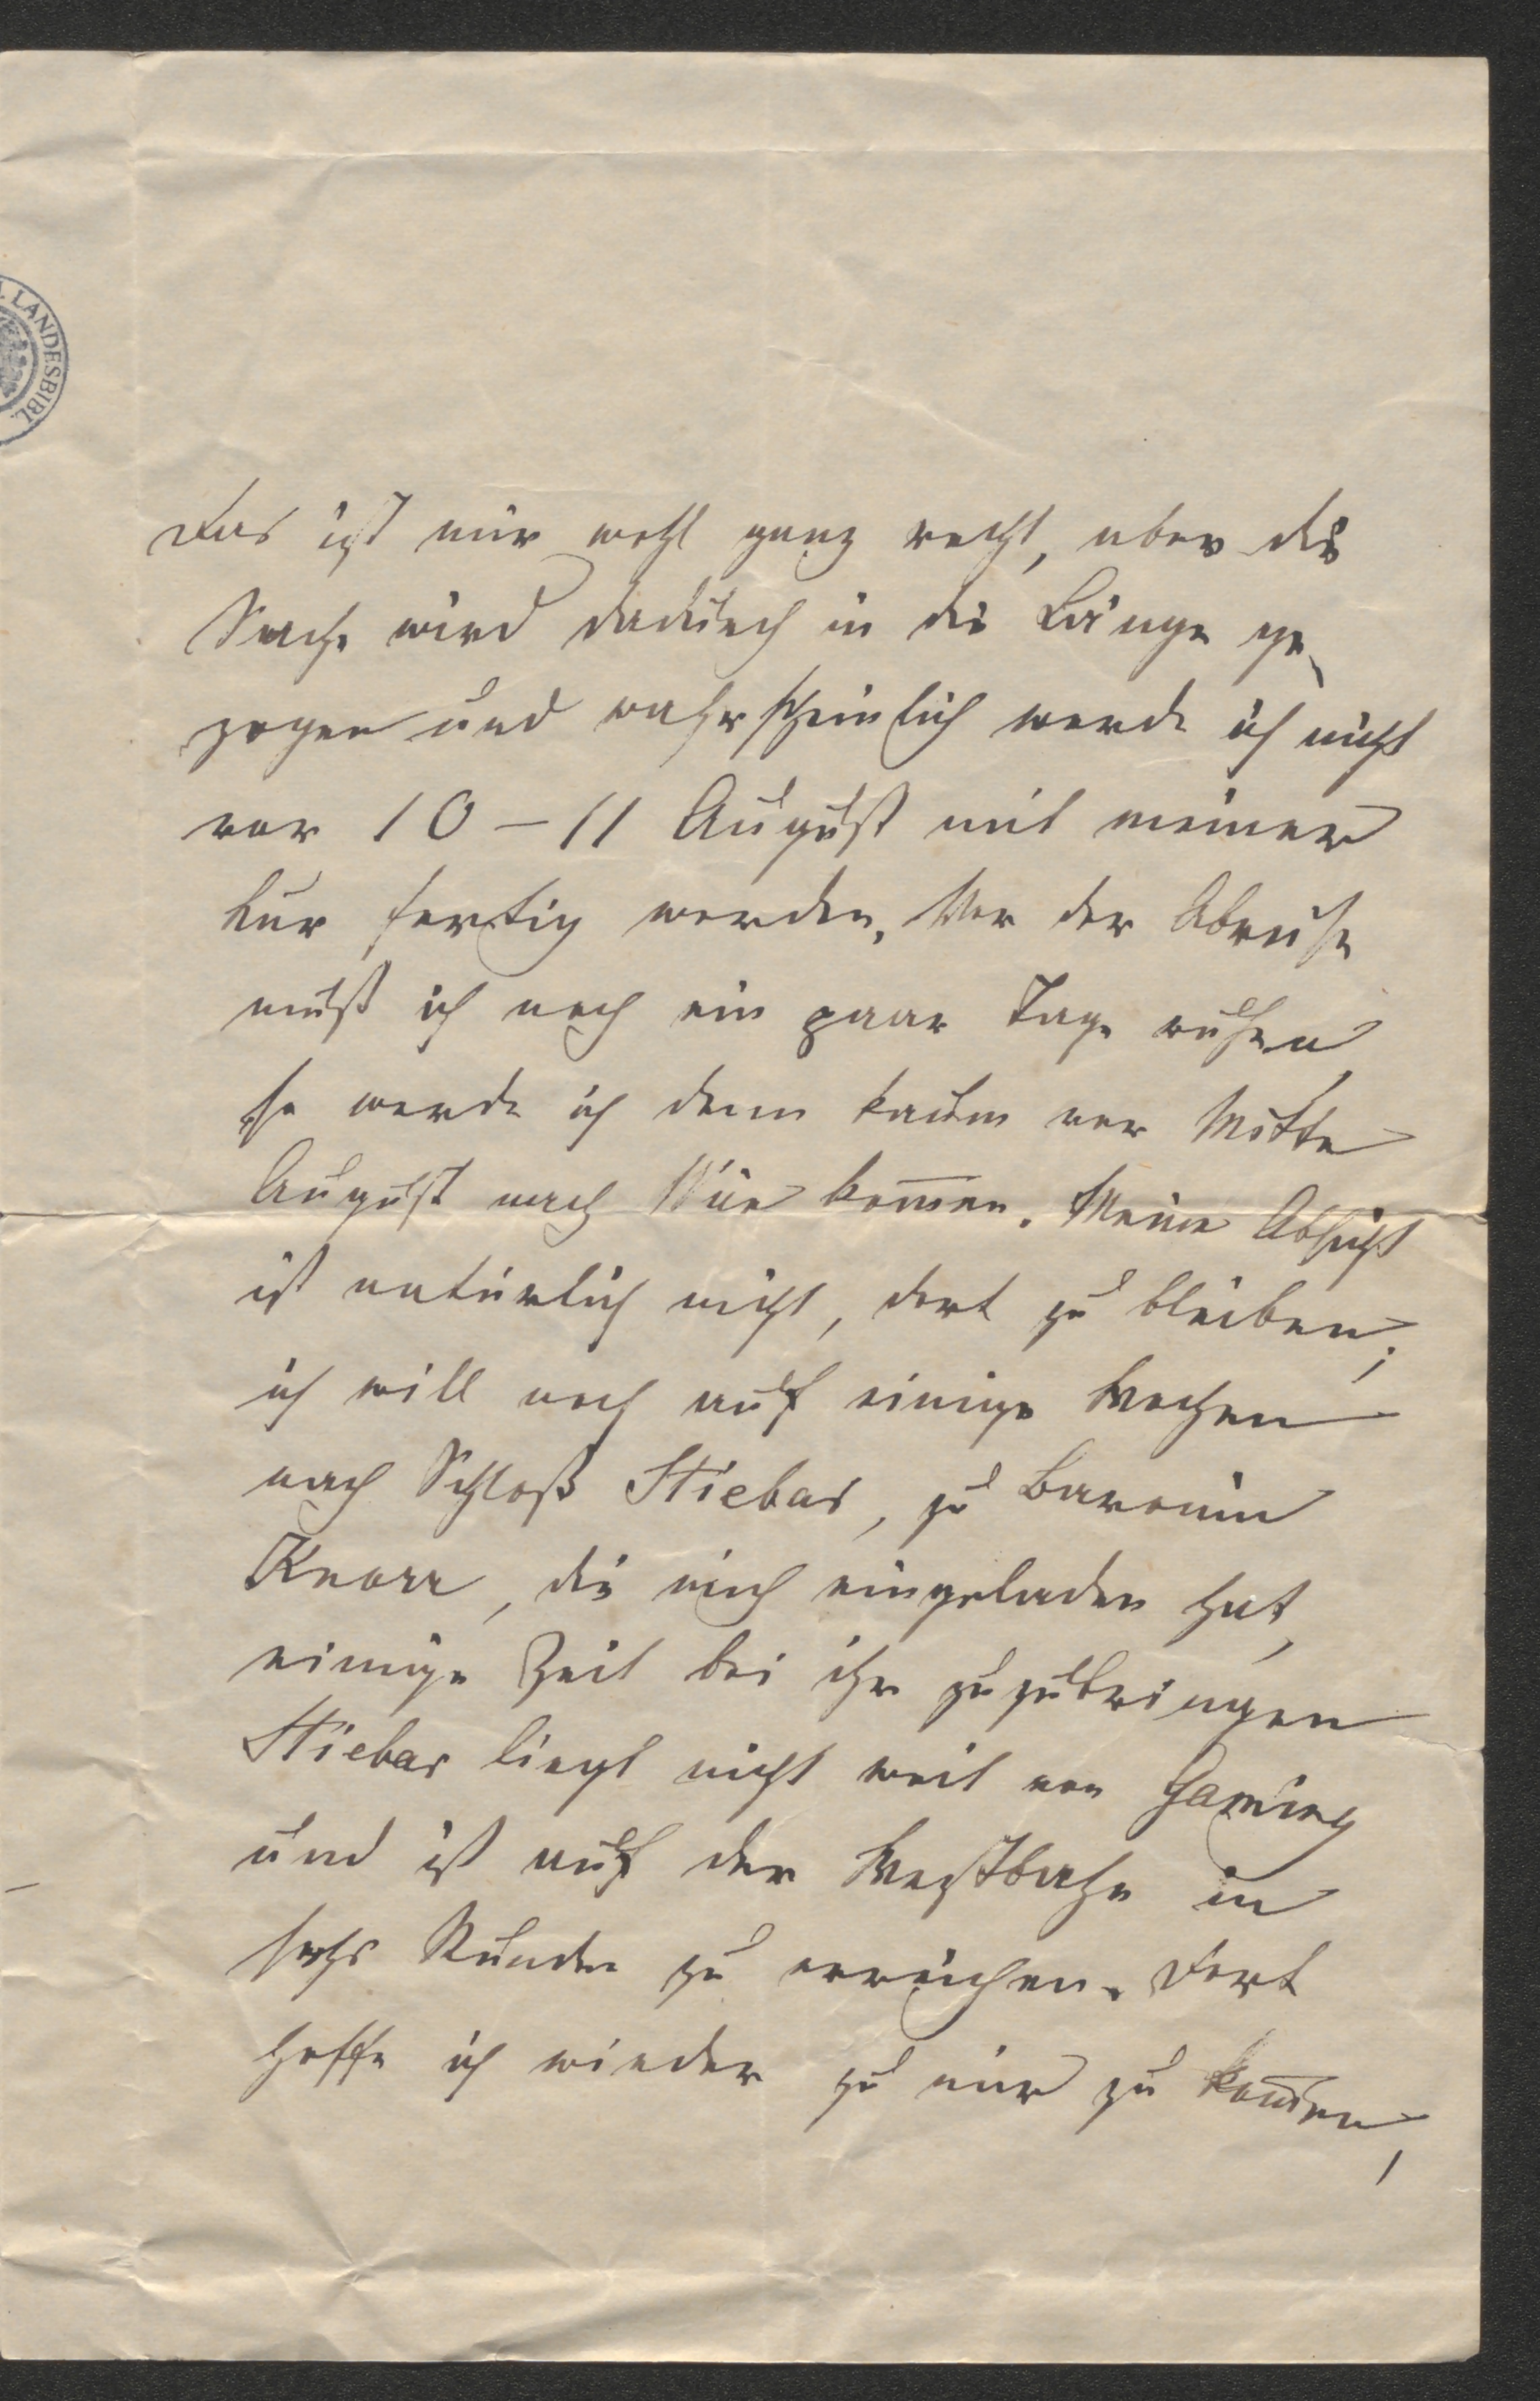 LANDESBIBL.
Das ist mir wohl ganz recht, aber die
Sache wird dadurch in die Länge ge-
zogen und wahrscheinlich werde ich nicht
vor 10–11 August mit meiner
Kur fertig werden. Vor der Abreise
muß ich noch ein paar Tage ruhen,
so werde ich denn kaum vor Mitte
August nach Wien kom̅en. Meine Absicht
ist natürlich nicht, dort zu bleiben;
ich will noch auf einige Wochen
nach Schloß Stiebar, zu Baronin
Knorr, die mich eingeladen hat,
einige Zeit bei ihr zuzubringen
Stiebar liegt nicht weit von Gaming
und ist auf der Westbahn in
sechs Stunden zu erreichen. Dort
hoffe ich wieder zu mir zu kom̅en,